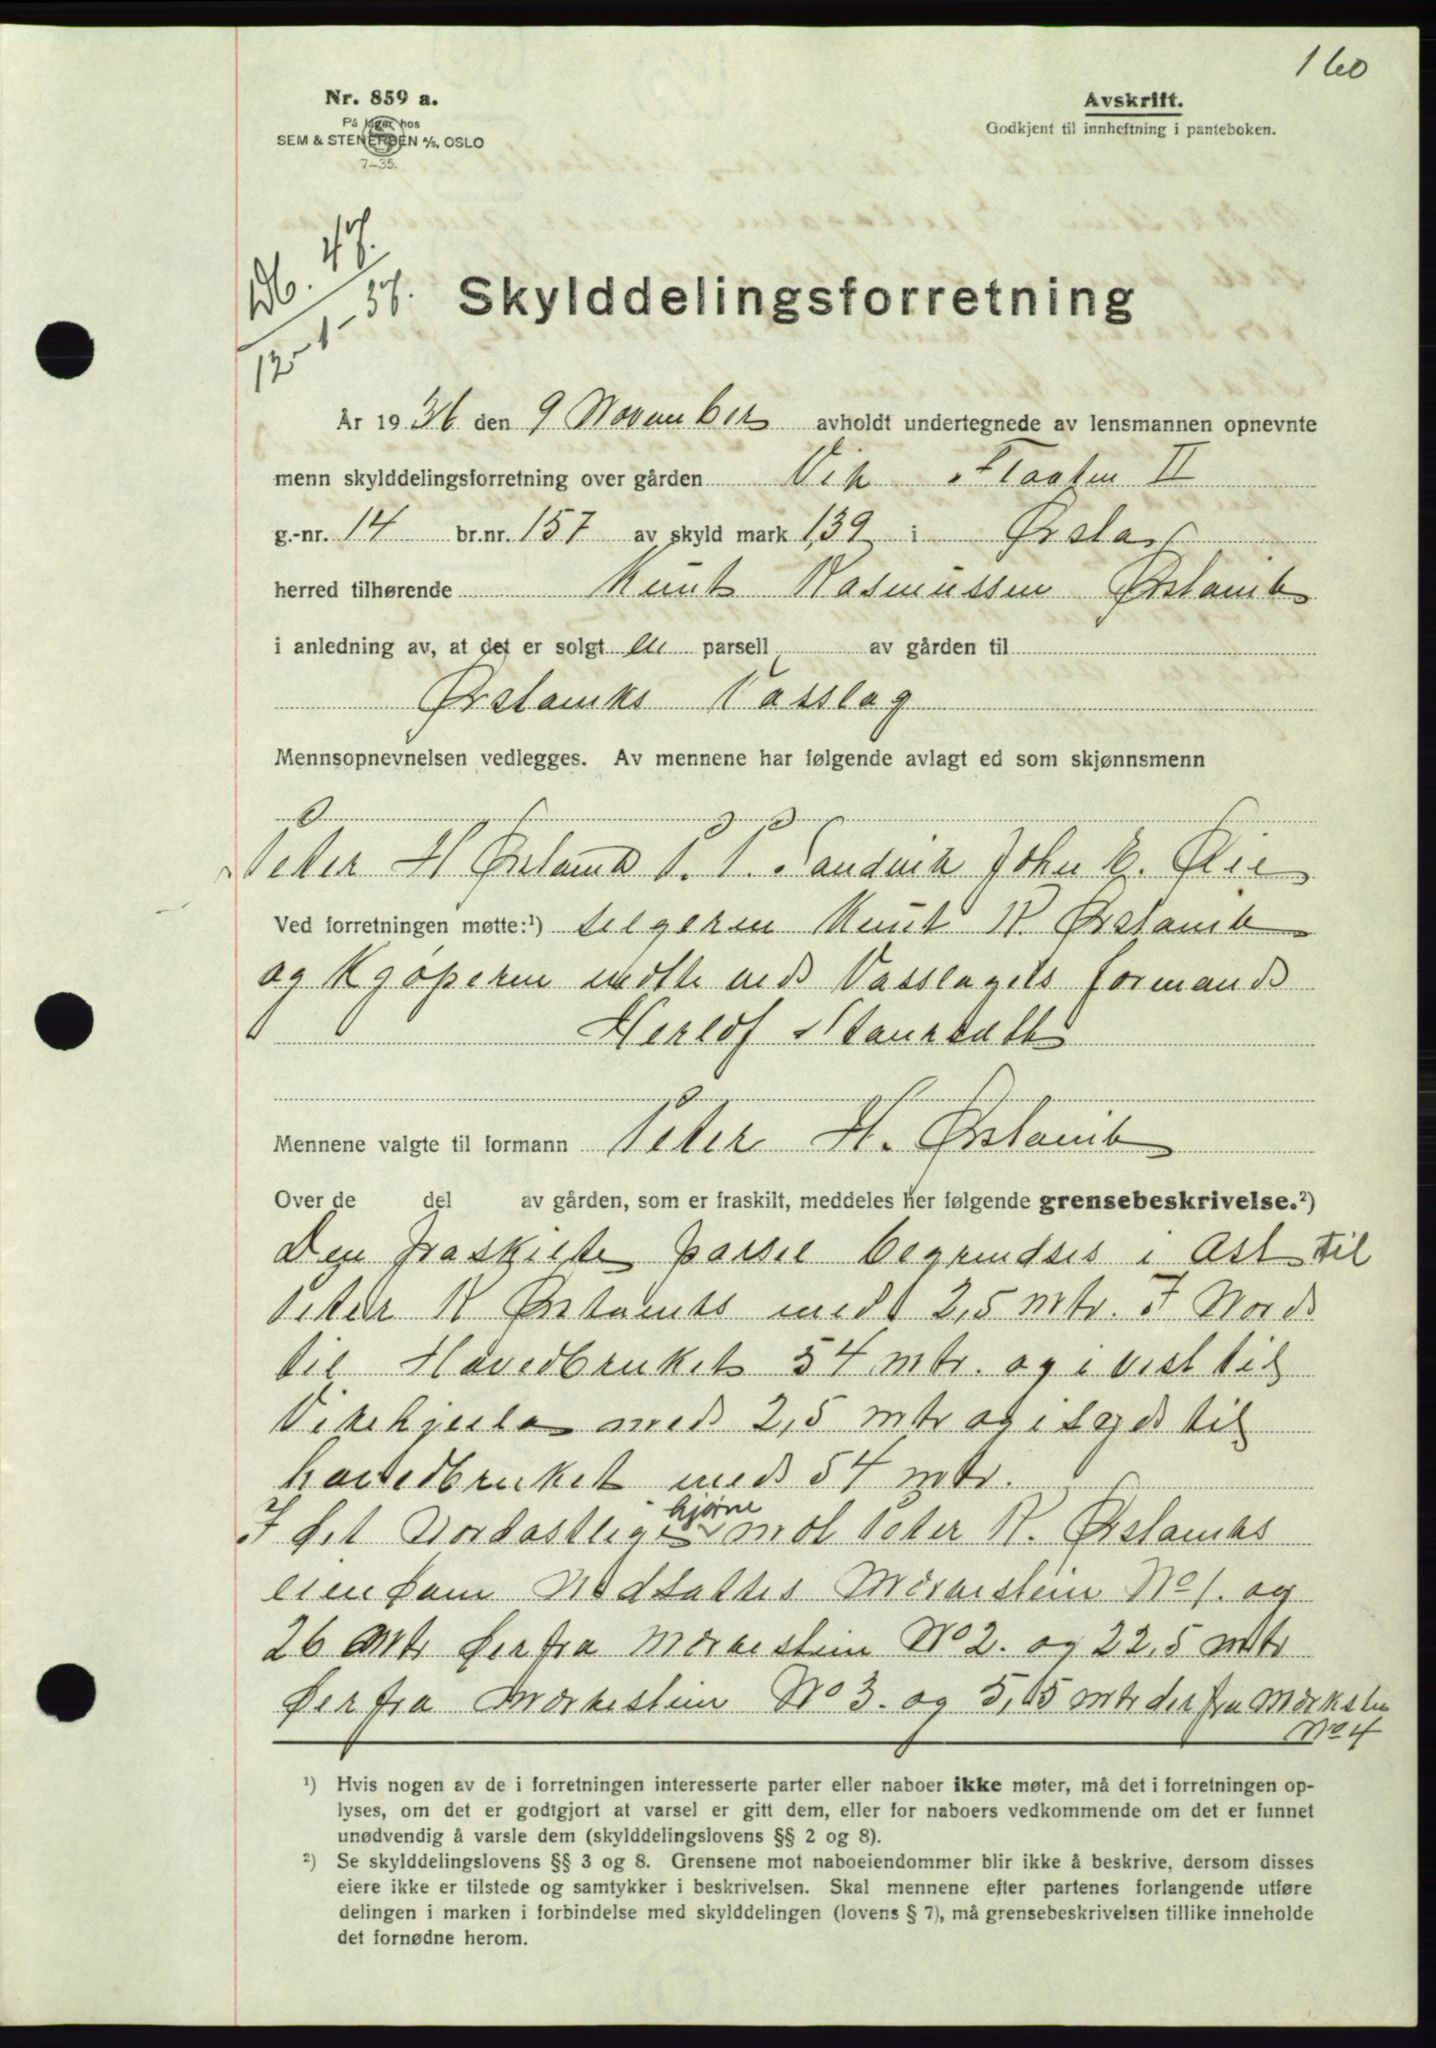 160
Nr. 859 a.
På lager hos
SEM & STENERSEN A/S, OSLO
7-35.
Avskrift.
Godkjent til innheftning i panteboken.
Db. 47.
12-1-37.
Skylddelingsforretning
År 1936 den 9 November avholdt undertegnede av lensmannen opnevnte
menn skylddelingsforretning over gården Vik Flaaten II
g.-nr. 14 br.nr. 157 av skyld mark 1,39 i Ørsta
herred tilhørende Knut Rasmussen Ørstavik
i anledning av, at det er solgt en parsell av gården til
Ørstaviks Vasslag
Mennsopnevnelsen vedlegges. Av mennene har følgende avlagt ed som skjønnsmenn
Peter H Ørstavik P. P. Sandvik John E. Øie
Ved forretningen møtte:¹) selgeren Knut R. Ørstavik
og Kjøperen møtte ved Vasslagets formand
Herlof Staurset
Mennene valgte til formann Peter H. Ørstavik
Over de del av gården, som er fraskilt, meddeles her følgende grensebeskrivelse.²)
Den fraskilte parsel begrendses i Øst til
Peter R Ørstaviks med 2,5 mtr. I Nord
til Hovedbruket 54 mtr. og i vest til
Vikekjeila med 2,5 mtr og i syd til
hovedbruket med 54 mtr.
hjørne
I det Nordøstlige mot Peter R. Ørstaviks
eiendom Nedsattes Merkestein No 1. og
26 mtr derfra merkestein No 2. og 22,5 mtr
derfra merkestein No 3. og 5,05 mtr derfra merkstein
No 4
¹) Hvis nogen av de i forretningen interesserte parter eller naboer ikke møter, må det i forretningen op-
lyses, om det er godtgjort at varsel er gitt dem, eller for naboers vedkommende om det er funnet
unødvendig å varsle dem (skylddelingslovens §§ 2 og 8).
²) Se skylddelingslovens §§ 3 og 8. Grensene mot naboeiendommer blir ikke å beskrive, dersom disses
eiere ikke er tilstede og samtykker i beskrivelsen. Skal mennene efter partenes forlangende utføre
delingen i marken i forbindelse med skylddelingen (lovens § 7), må grensebeskrivelsen tillike inneholde
det fornødne herom.